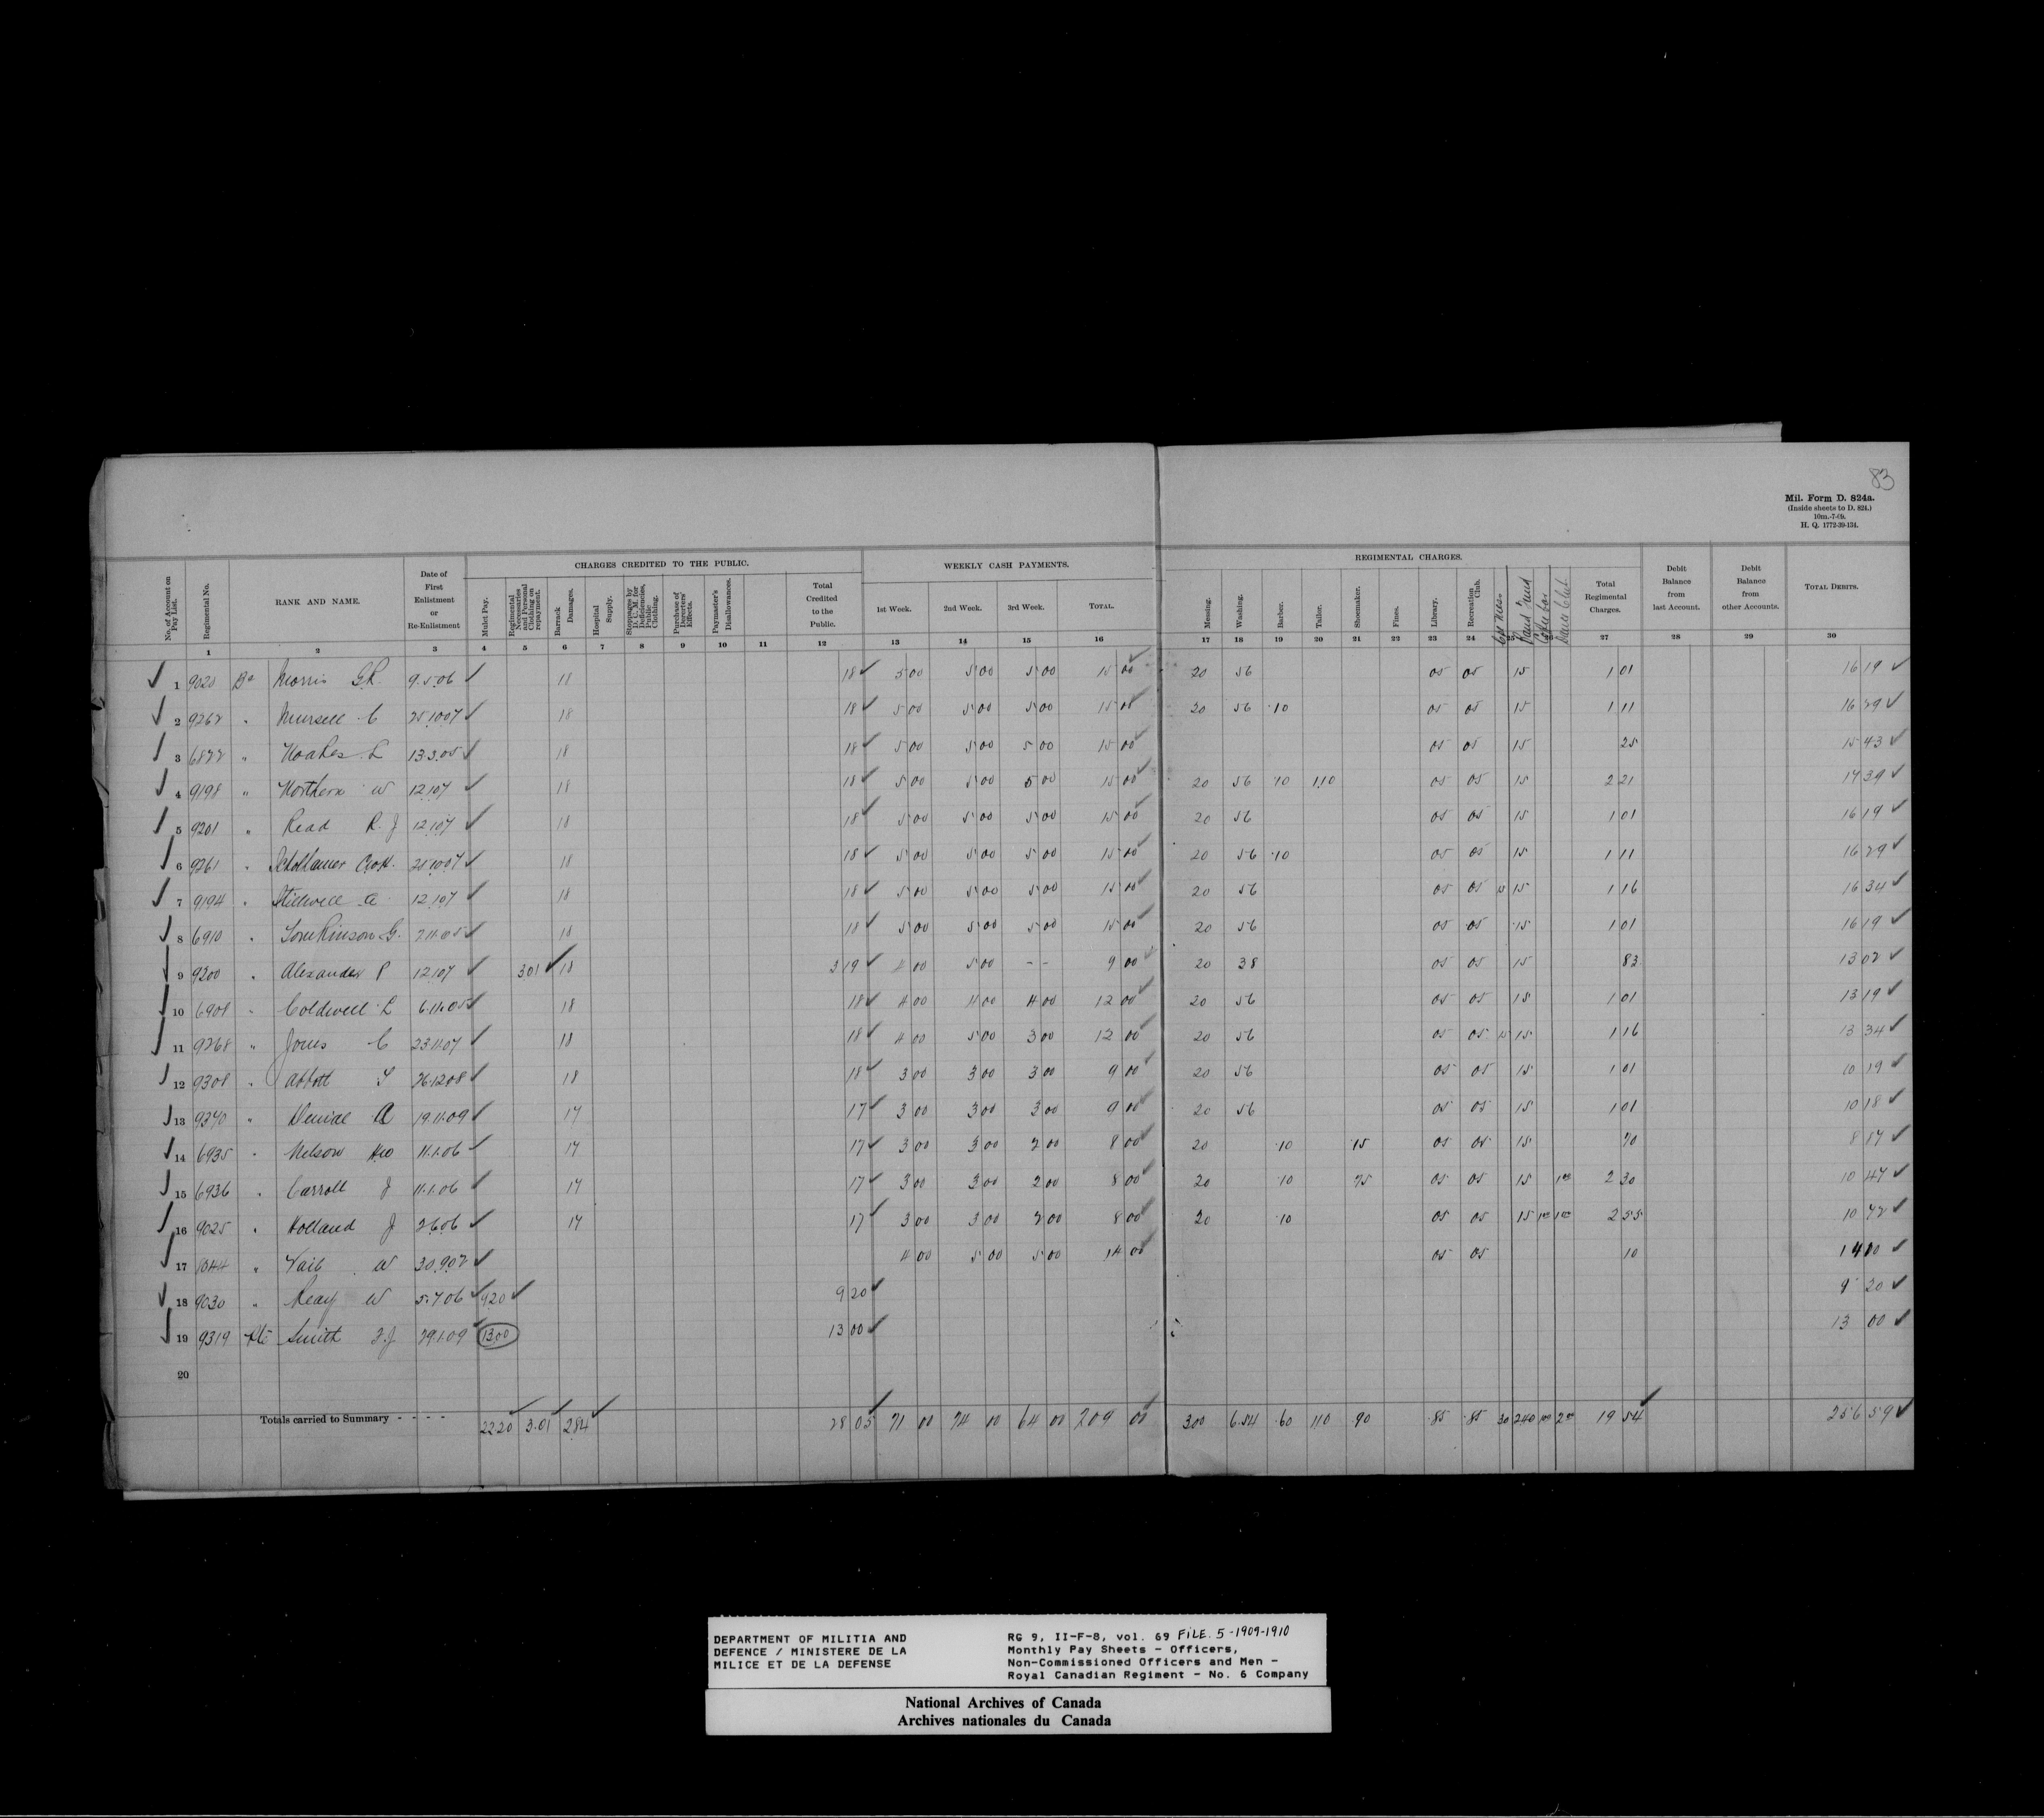 83
Mil. Form D. 824a.
(Inside sheets to D. 824.)
10m.-7-09.
H. Q. 1772-39-134.
CHARGES CREDITED TO THE PUBLIC. WEEKLY CASH PAYMENTS. REGIMENTAL CHARGES.
No. of Account on Pay List. Regimental No. RANK AND NAME. Date of First Enlistment or Re-Enlistment Mulct Pay. Regimental Necessaries and Personal Clothing on repayment. Barrack Damages. Hospital Supply. Stoppages by D. U. M. for Deficiencies, Public Clothing. Purchase of Deserters' Effects. Paymaster's Disallowances. Total Credited to the Public. 1st Week. 2nd Week. 3rd Week. TOTAL. Messing. Washing. Barber. Tailor. Shoemaker. Fines. Library. Recreation Club. Band Fund Dance Club Total Regimental Charges. Debit Balance from last Account. Debit Balance from other Accounts. TOTAL DEBITS.
1 2 3 4 5 6 7 8 9 10 11 12 13 14 15 16 17 18 19 20 21 22 23 24 25 26 27 28 29 30
1 9020 Morris G.R. 9.5.06 18 18 5 00 5 00 5 00 15 00 20 56 05 05 15 1 01 16 19
2 9262 " Mursell C 25.10.07 18 18 5 00 5 00 5 00 15 00 20 56 10 05 05 15 1 11 16 29
3 6822 " Noakes L 13.3.05 18 18 5 00 5 00 5 00 15 00 05 05 15 25 15 43
4 9198 " Northern W 12.1.07 18 18 5 00 5 00 5 00 15 00 20 56 10 1.10 05 05 15 2 21 17 39
5 9201 " Read R. J 12.1.07 18 18 5 00 5 00 5 00 15 00 20 56 05 05 15 1 01 16 19
6 9261 " 25.10.07 18 18 5 00 5 00 5 00 15 00 20 56 10 05 05 15 1 11 16 29
7 9194 " Stillwell A 12.1.07 18 18 5 00 5 00 5 00 15 00 20 56 05 05 15 15 1 16 16 34
8 6910 " Tomkinson G. 7.11.05 18 18 5 00 5 00 5 00 15 00 20 56 05 05 15 1 01 16 19
9 9200 " Alexander P 12.1.07 3.01 18 3 19 4 00 5 00 - - 9 00 20 38 05 05 15 83 13 02
10 6908 " Coldwell L 6.11.05 18 18 4 00 4 00 4 00 12 00 20 56 05 05 15 1 01 13 19
11 9268 " Jones C 23.11.07 18 18 4 00 5 00 3 00 12 00 20 56 05 05 15 15 1 16 13 34
12 9308 " Abbott S 26.12.08 18 18 3 00 3 00 3 00 9 00 20 56 05 05 15 1 01 10 19
13 9370 " A 19.11.09 17 17 3 00 3 00 3 00 9 00 20 56 05 05 15 1 01 10 18
14 6935 " Nelson 11.1.06 17 17 3 00 3 00 2 00 8 00 20 10 15 05 05 15 70 8 87
15 6936 " Carroll J 11.1.06 17 17 3 00 3 00 2 00 8 00 20 10 75 05 05 15 1 00 2 30 10 47
16 9025 " Holland J 2.6.06 17 17 3 00 3 00 2 00 8 00 20 10 05 05 15 1 00 1 00 2 55 10 72
17 " Vail W 30.9.02 4 00 5 00 5 00 14 00 05 05 10 14 10
18 9030 " Reay W 5.7.06 9 20 9 20 9 20
19 9319 Pte Smith F.J 29.1.09 13.00 13 00 13 00
20
Totals carried to Summary - - - - 22.20 3.01 2.84 28 05 71 00 74 00 64 00 209 00 3.00 6.54 .60 1.10 .90 .85 .85 30 2.40 1 00 2 00 19 54 256 59
DEPARTMENT OF MILITIA AND
DEFENCE / MINISTERE DE LA
MILICE ET DE LA DEFENSE
RG 9, II-F-8, vol. 69 FILE. 5-1909-1910
Monthly Pay Sheets - Officers,
Non-Commissioned Officers and Men -
Royal Canadian Regiment - No. 6 Company
National Archives of Canada
Archives nationales du Canada